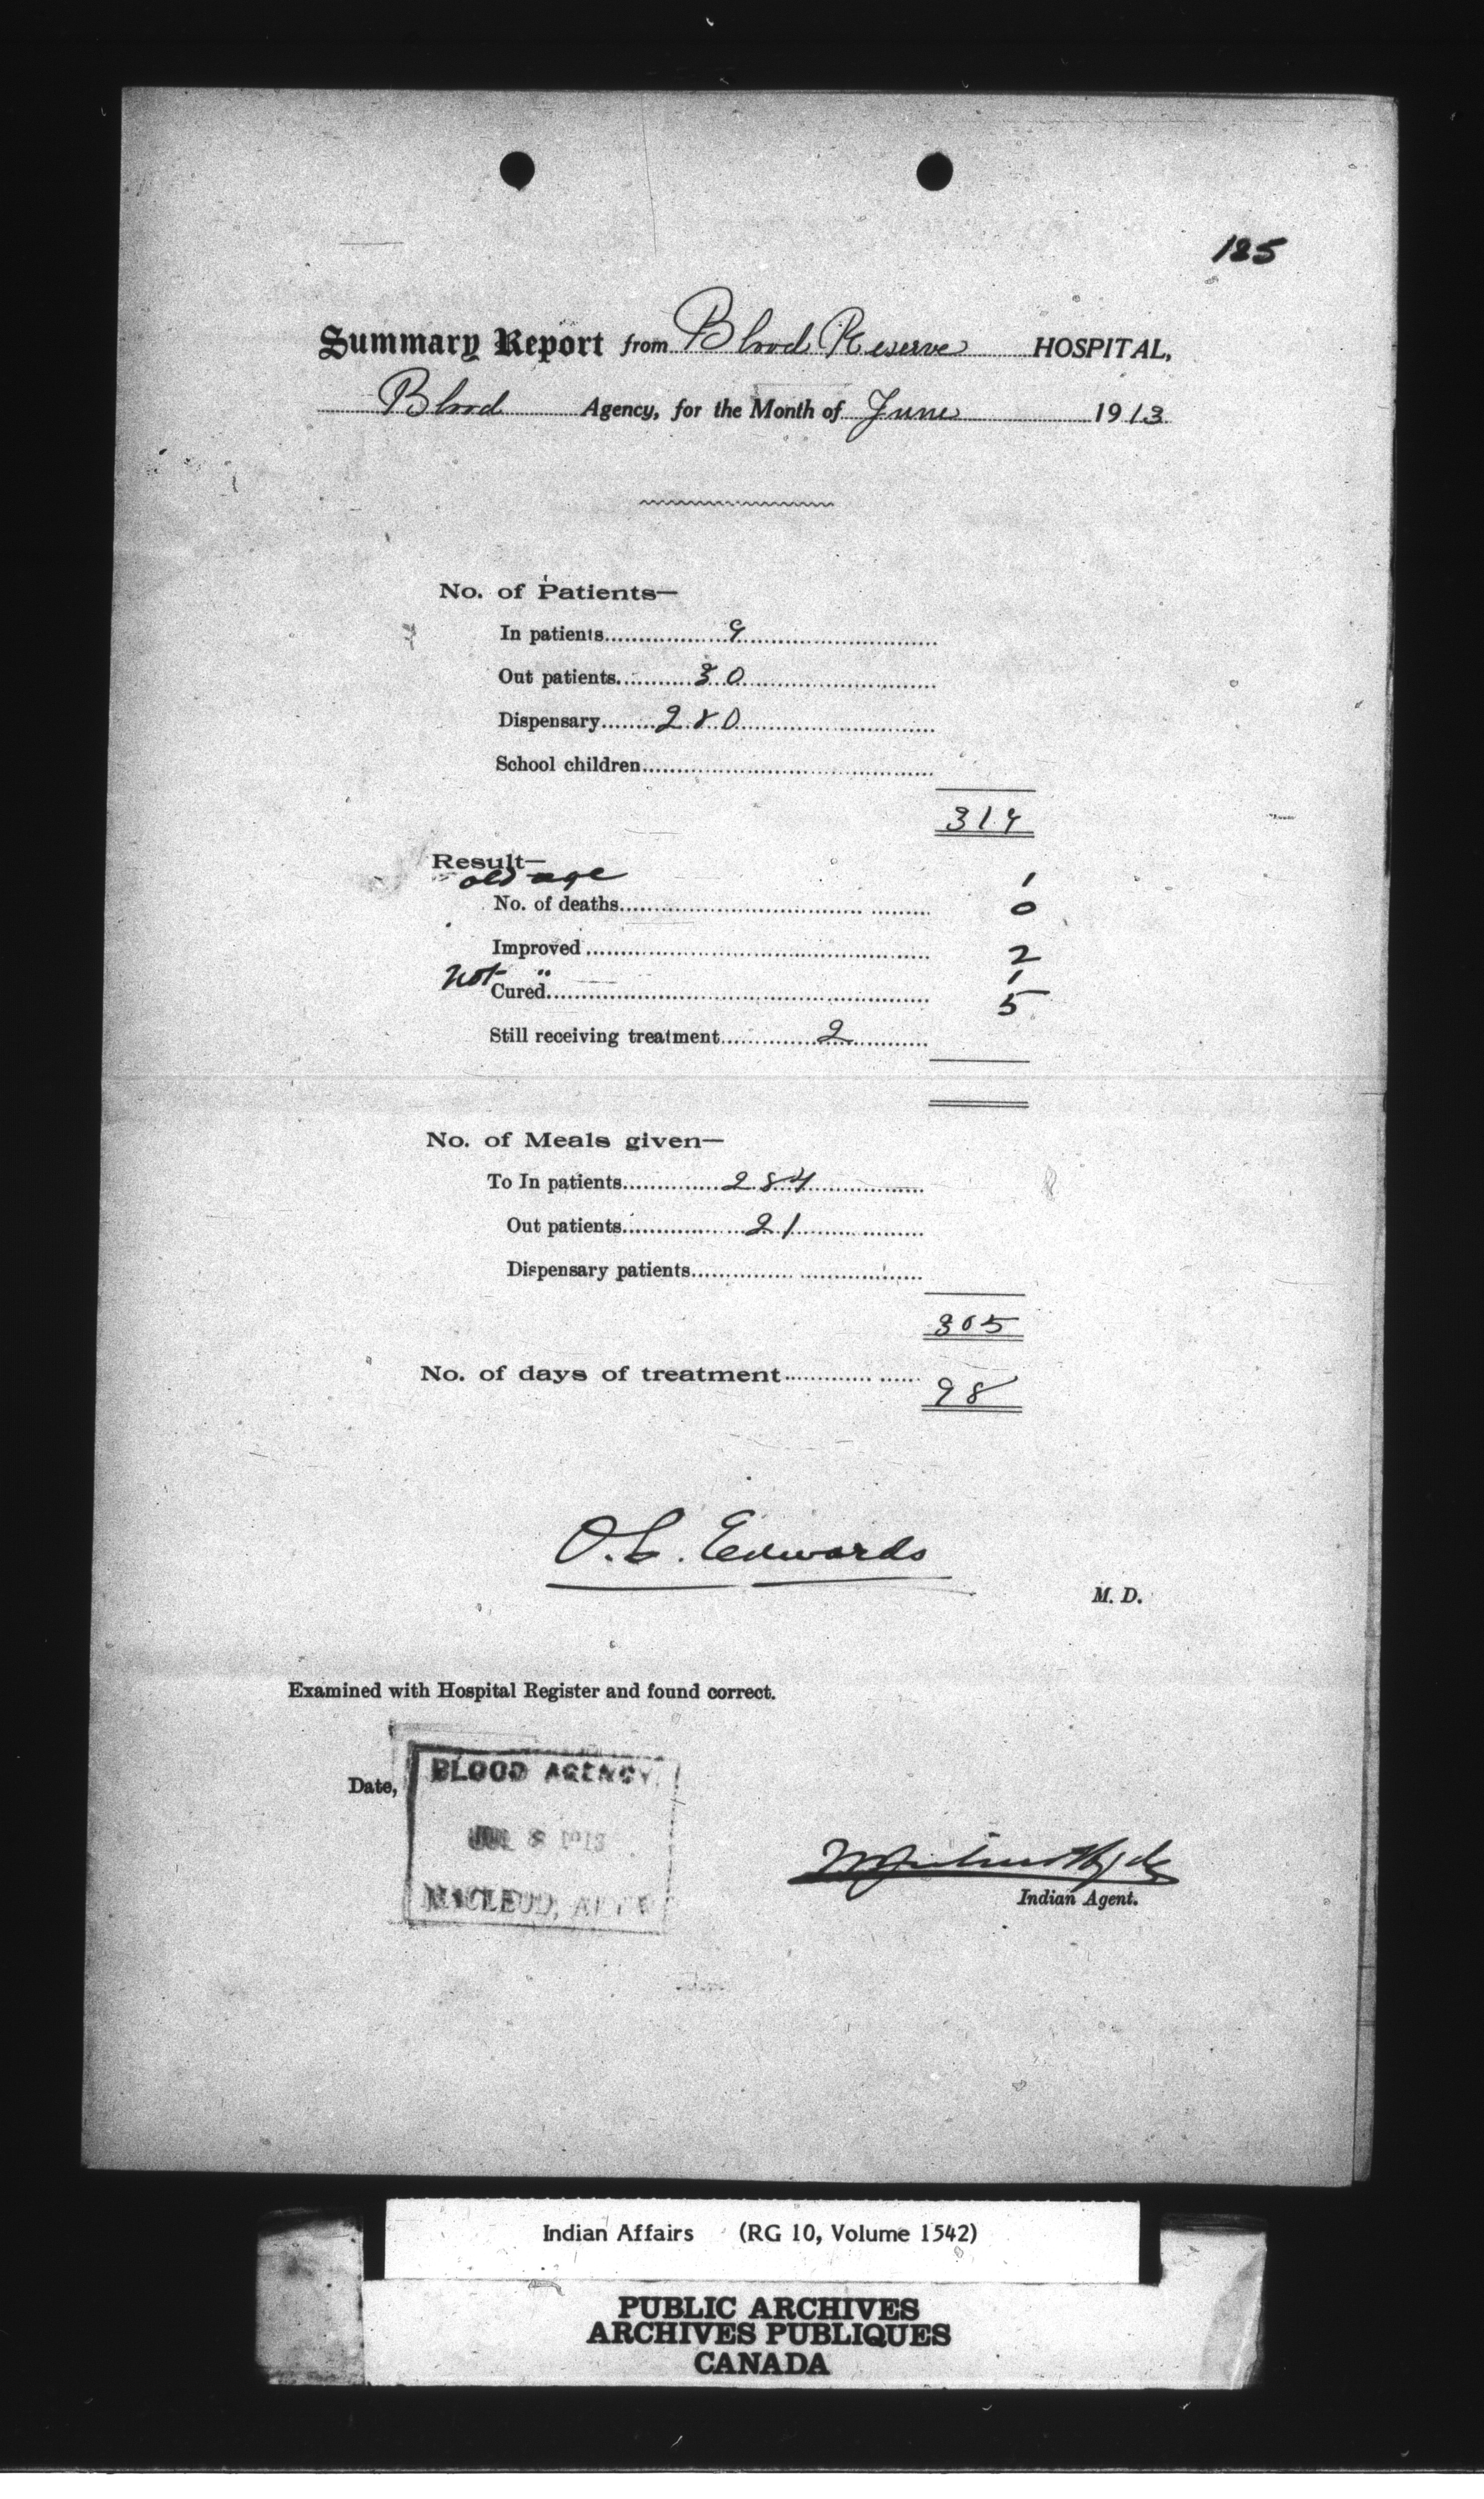 125
Summary Report from Blood Reserve HOSPITAL,
Blood Agency, for the Month of June 1913
No. of Patients—
In patients 9
Out patients 30
Dispensary 280
School children
319
Result—
old age 1
No. of deaths 0
Improved 2
Not " 1
Cured 5
Still receiving treatment 2
No. of Meals given—
To In patients 284
Out patients 21
Dispensary patients
305
No. of days of treatment 98
O. C. Edwards
M. D.
Examined with Hospital Register and found correct.
Date,
BLOOD AGENCY
JUL 8 1913
MACLEOD, ALTA
Indian Agent.
Indian Affairs (RG 10, Volume 1542)
PUBLIC ARCHIVES
ARCHIVES PUBLIQUES
CANADA